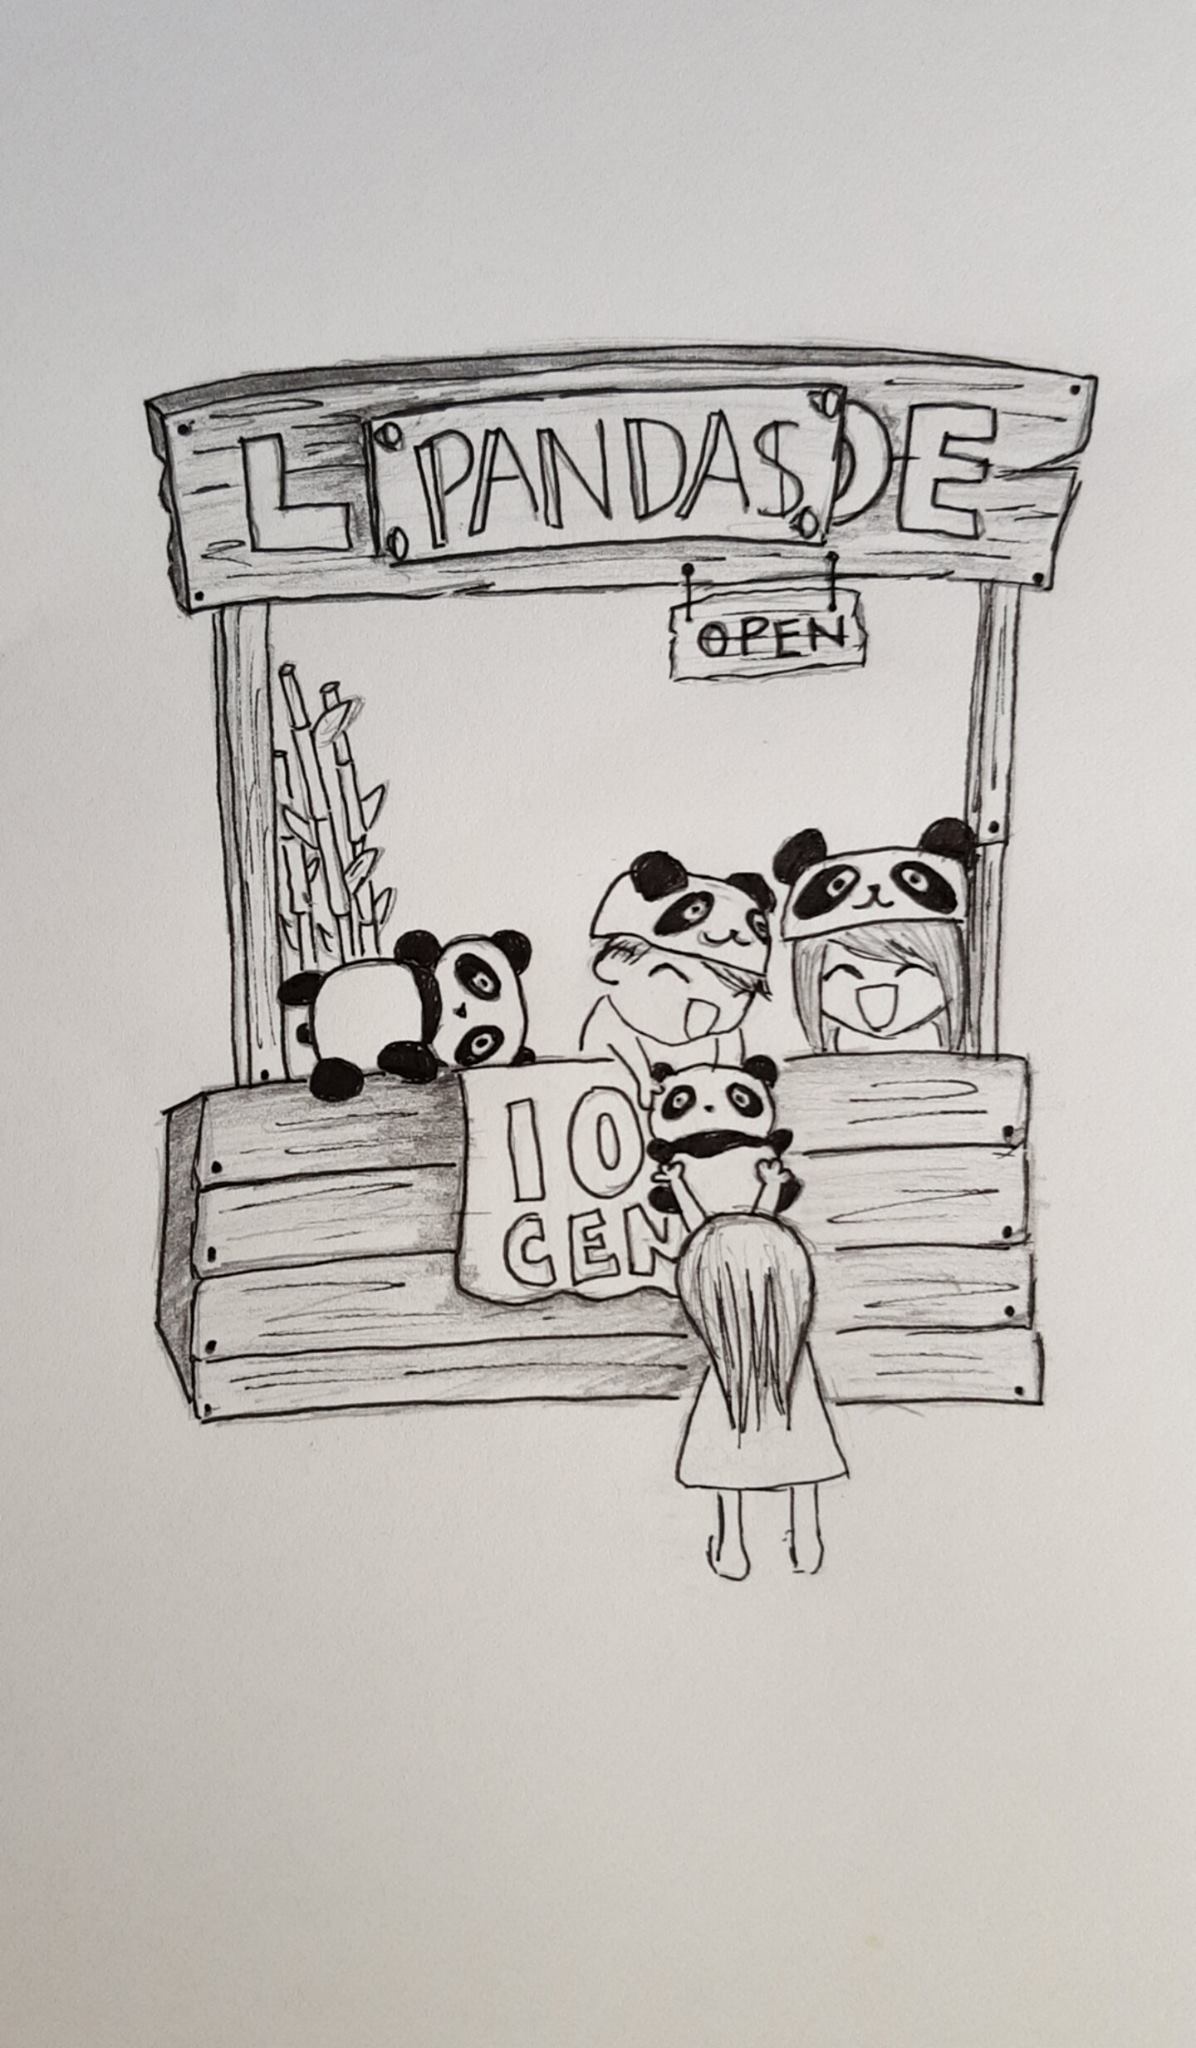 L PANDA$ DE
OPEN
10
CEN